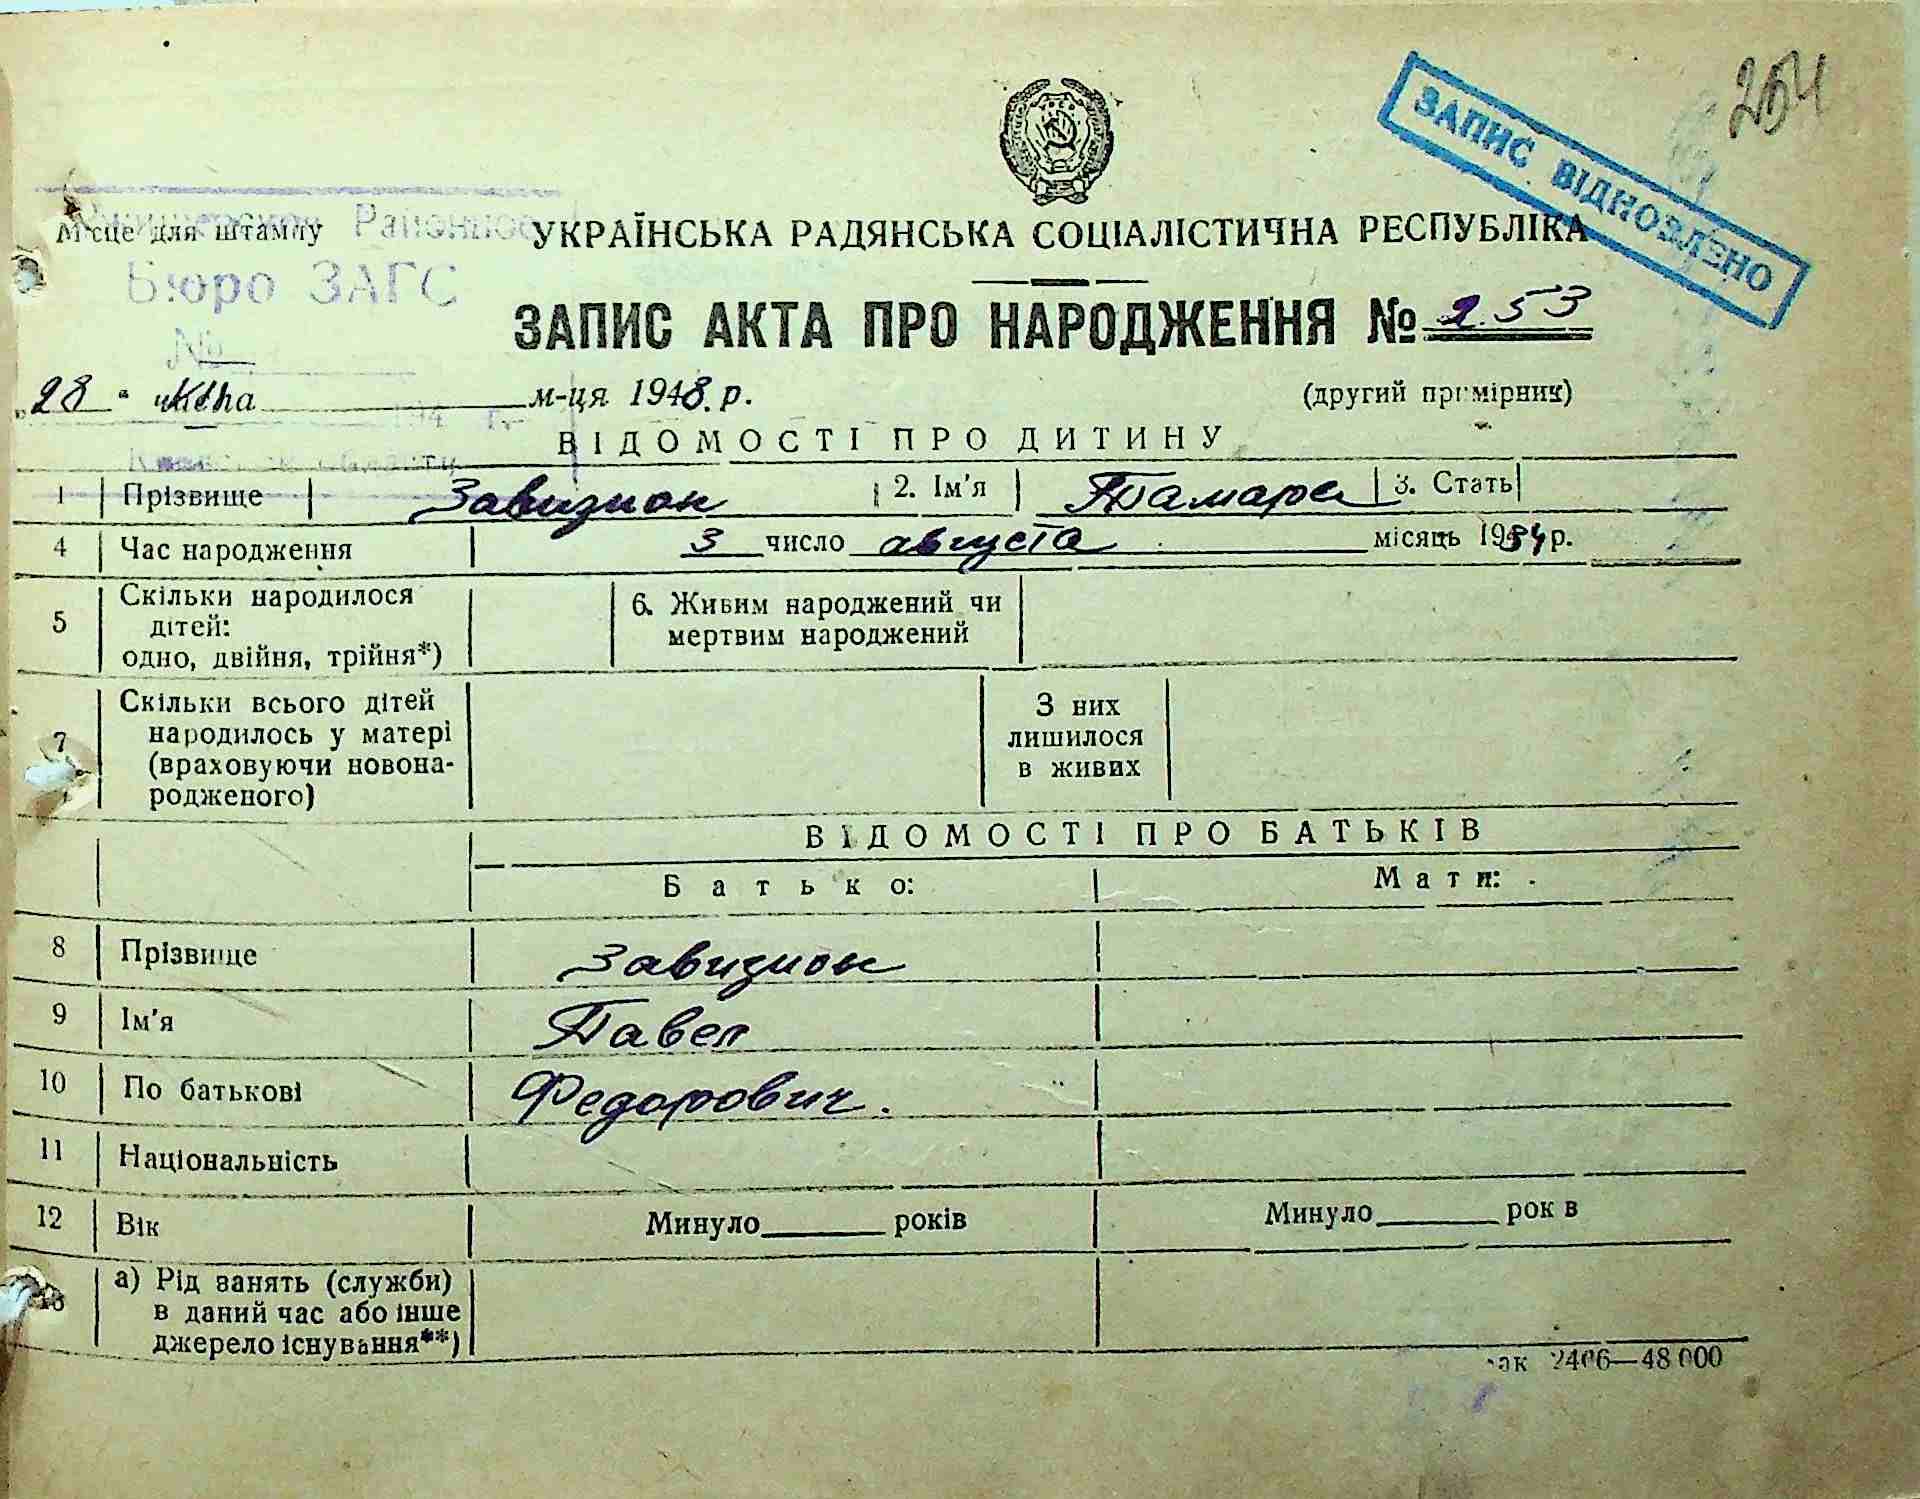 254
ЗАПИС ВІДНОВЛЕНО
Місце для штампу
Районное
УКРАЇНСЬКА РАДЯНСЬКА СОЦІАЛІСТИЧНА РЕСПУБЛІКА
Бюро ЗАГС
№
ЗАПИС АКТА ПРО НАРОДЖЕННЯ № 253
„28" м-ця 1948 р. (другий примірник)
194 г.
ВІДОМОСТІ ПРО ДИТИНУ
1 Прізвище Завизион 2. Ім'я Тамара 3. Стать
4 Час народження 3 число августа місяць 1934 р.
5 Скільки народилося дітей: одно, двійня, трійня*) 6. Живим народжений чи мертвим народжений
7 Скільки всього дітей народилось у матері (враховуючи новонародженого) З них лишилося в живих
ВІДОМОСТІ ПРО БАТЬКІВ
Батько: Мати:
8 Прізвище Завизион
9 Ім'я Павел
10 По батькові Федорович.
11 Національність
12 Вік Минуло років Минуло рок в
13 а) Рід занять (служби) в даний час або інше джерело існування**)
зак 2406—48 000